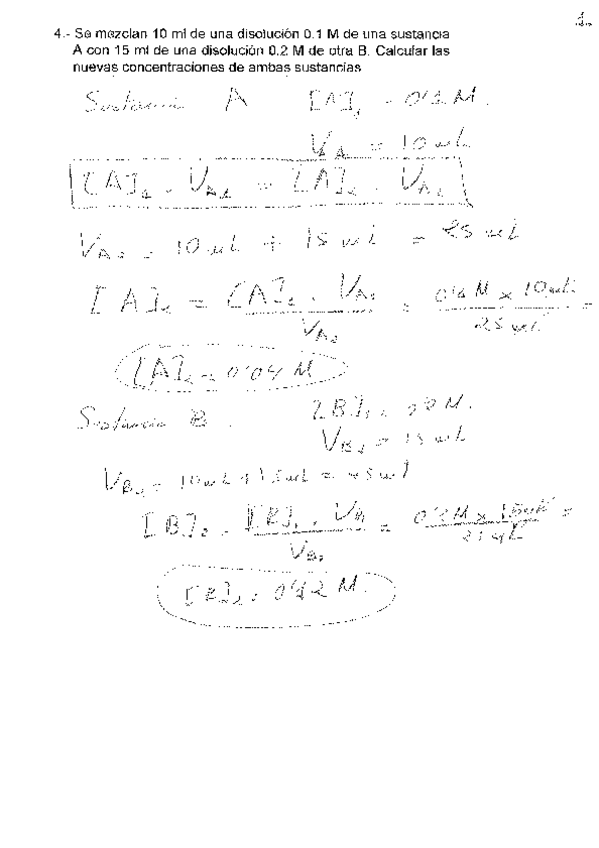 1.
4.- Se mezclan 10 ml de una disolución 0.1 M de una sustancia
A con 15 ml de una disolución 0.2 M de otra B. Calcular las
nuevas concentraciones de ambas sustancias
Sustancia A [A]₁ = 0'1 M.
V_A = 10 mL
[A]₁ . V_A₁ = [A]₂ . V_A₂
V_A₂ = 10 mL + 15 mL = 25 mL
[A]₂ = [A]₁ . V_A₁ / V_A₂ = 0'1 M x 10 mL / 25 mL =
[A]₂ = 0'04 M
Sustancia B. [B]₁ = 0'2 M.
V_B₁ = 15 mL
V_B₂ = 10 mL + 15 mL = 25 mL
[B]₂ = [B]₁ . V_B₁ / V_B₂ = 0'2 M x 15 mL / 25 mL =
[B]₂ = 0'12 M.